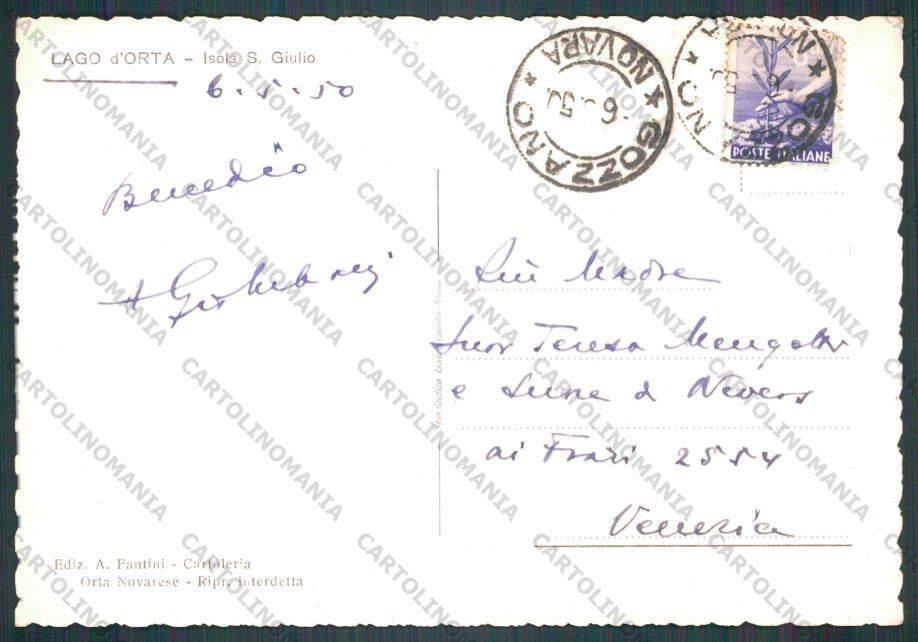 LAGO d'ORTA - Isola S. Giulio
6.5.50
GOZZANO
* NOVARA *
6 5 50
GOZZANO
* NOVARA *
POSTE ITALIANE
Benedico
Madre
Suor Teresa
e Suore d Nevers
ai Frari 2554
Venezia
Ediz. A. Fantini - Cartoleria
Orta Novarese - Ripr. interdetta
CARTOLINOMANIA